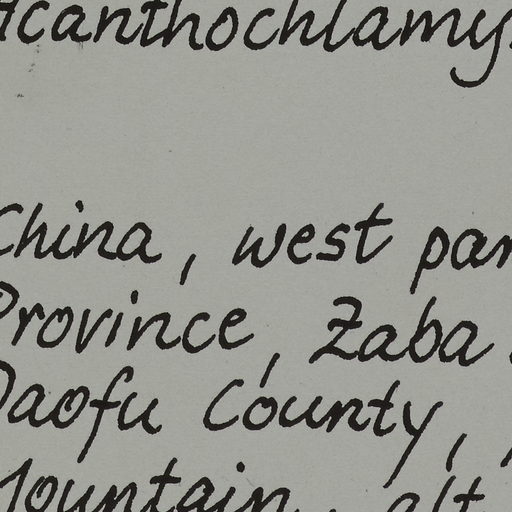 Acanthochlamys
China, west par
Province, Zaba
Daofu County,
Mountain, alt